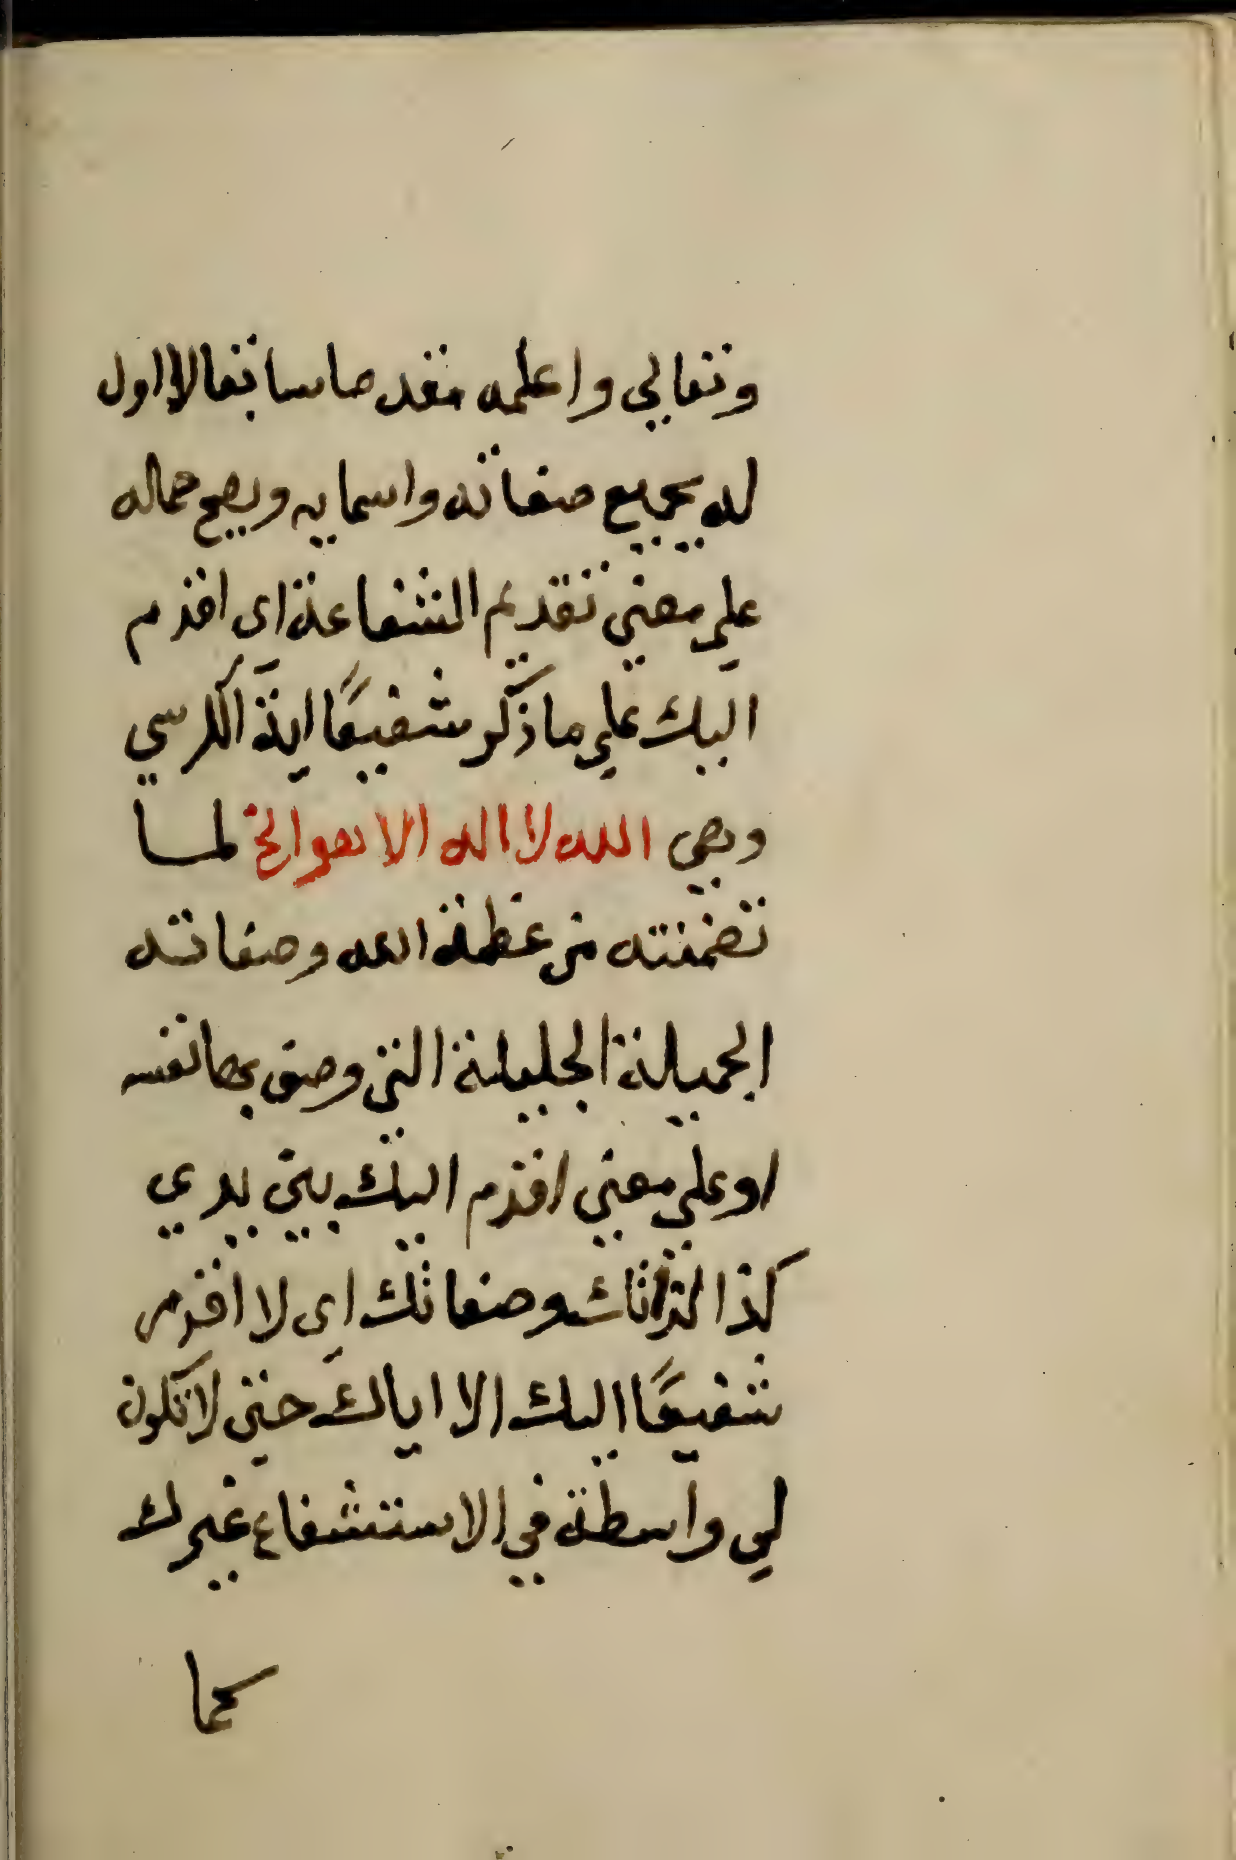 وتعالي واعلمه متقدما سابقا لا اول
له بجميع صفاته واسمايه ويصح حماله
علي معني تقديم الشفاعة اي اقدم
اليك علي ما ذكر شفيعًا اية الكرسي
وهي الله لا اله الا هو الخ لما
تضمنته من عظمة الله وصفاته
الجميلة الجليلة التي وصف بها نفسه
او علي معني اقدم اليك بين يدي
كذا لذاتك وصفاتك اي لا اقدم
شفيعًا اليك الا اياك حتي لا تكون
لي واسطة في الاستشفاع غيرك
كما